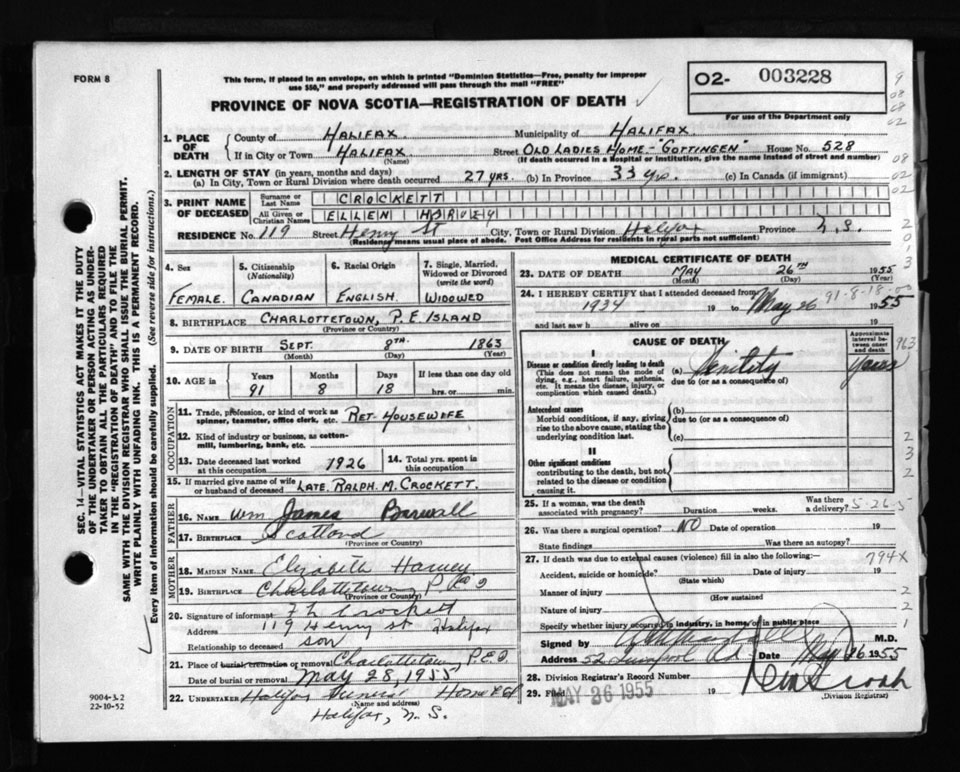 FORM 8
This form, if placed in an envelope, on which is printed "Dominion Statistics—Free, penalty for improper
use $50," and properly addressed will pass through the mail "FREE"
PROVINCE OF NOVA SCOTIA—REGISTRATION OF DEATH
02- 003228
For use of the Department only
1. PLACE OF DEATH
County of HALIFAX Municipality of HALIFAX
If in City or Town HALIFAX (Name) Street OLD LADIES HOME - "GOTTINGEN" House No. 528
(If death occurred in a Hospital or institution, give the name instead of street and number)
2. LENGTH OF STAY (in years, months and days)
(a) In City, Town or Rural Division where death occurred 27 YRS. (b) In Province 33 Yrs. (c) In Canada (if immigrant)
3. PRINT NAME OF DECEASED
Surname or Last Name CROCKETT
All Given or Christian Names ELLEN
RESIDENCE No. 119 Street Henry St City, Town or Rural Division Halifax Province N.S.
(Residence means usual place of abode. Post Office Address for residents in rural parts not sufficient)
4. Sex
FEMALE
5. Citizenship (Nationality)
CANADIAN
6. Racial Origin
ENGLISH
7. Single, Married, Widowed or Divorced (write the word)
WIDOWED
8. BIRTHPLACE CHARLOTTETOWN, P.E. ISLAND
(Province or Country)
9. DATE OF BIRTH SEPT. 8TH 1863
(Month) (Day) (Year)
10. AGE in
Years Months Days If less than one day old
91 8 18 hrs. or min.
OCCUPATION
11. Trade, profession, or kind of work as spinner, teamster, office clerk, etc. RET- HOUSEWIFE
12. Kind of industry or business, as cotton-mill, lumbering, bank, etc.
13. Date deceased last worked at this occupation 1926
14. Total yrs. spent in this occupation
15. If married give name of wife or husband of deceased LATE. RALPH. M. CROCKETT.
FATHER
16. NAME Wm James
17. BIRTHPLACE Scotland
(Province or Country)
MOTHER
18. MAIDEN NAME Elizabeth Harvey
19. BIRTHPLACE Charlottetown P.E.I
(Province or Country)
20. Signature of informant Crockett
Address 119 Henry St Halifax
Relationship to deceased son
21. Place of burial, cremation or removal Charlottetown, P.E.I
Date of burial or removal May 28, 1955
22. UNDERTAKER Halifax Funeral Home
(Name and address)
Halifax, N.S.
MEDICAL CERTIFICATE OF DEATH
23. DATE OF DEATH MAY 26TH 1955
(Month) (Day) (Year)
24. I HEREBY CERTIFY that I attended deceased from
1934 19 to May 26 1955
91-8-18
and last saw h alive on 19
CAUSE OF DEATH
Approximate interval between onset and death
I
Disease or condition directly leading to death
(This does not mean the mode of dying, e.g., heart failure, asthenia, etc. It means the disease, injury, or complication which caused death.)
(a) Senility years
due to (or as a consequence of)
Antecedent causes
Morbid conditions, if any, giving rise to the above cause, stating the underlying condition last.
(b)
due to (or as a consequence of)
(c)
II
Other significant conditions
contributing to the death, but not related to the disease or condition causing it.
25. If a woman, was the death associated with pregnancy? Duration weeks. Was there a delivery? 5-26-5
26. Was there surgical operation? NO Date of operation 19
State findings Was there an autopsy?
27. If death was due to external causes (violence) fill in also the following:— 794X
Accident, suicide or homicide? (State which) Date of injury 19
Manner of injury (How sustained)
Nature of injury
Specify whether injury occurred in industry, in home, or in public place
Signed by M.D.
Address 52 Rd. Date May 26 1955
28. Division Registrar's Record Number
29. Filed MAY 26 1955 19
(Division Registrar)
SEC. 14—VITAL STATISTICS ACT MAKES IT THE DUTY
OF THE UNDERTAKER OR PERSON ACTING AS UNDER-
TAKER TO OBTAIN ALL THE PARTICULARS REQUIRED
IN THE "REGISTRATION OF DEATH" AND TO FILE THE
SAME WITH THE DIVISION REGISTRAR WHO SHALL ISSUE THE BURIAL PERMIT.
WRITE PLAINLY WITH UNFADING INK. THIS IS A PERMANENT RECORD.
Every item of information should be carefully supplied. (See reverse side for instructions.)
9004-3.2
22-10-52